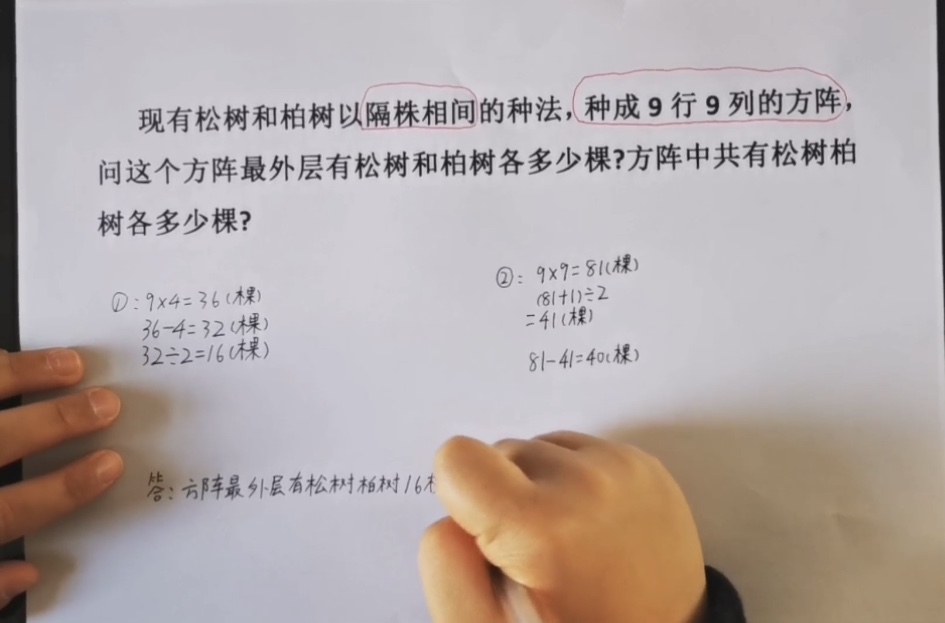 现有松树和柏树以隔株相间的种法，种成9行9列的方阵，
问这个方阵最外层有松树和柏树各多少棵？方阵中共有松树柏
树各多少棵？
①：9×4=36（棵）
36-4=32（棵）
32÷2=16（棵）
②：9×9=81（棵）
（81+1）÷2
=41（棵）
81-41=40（棵）
答：方阵最外层有松树柏树16